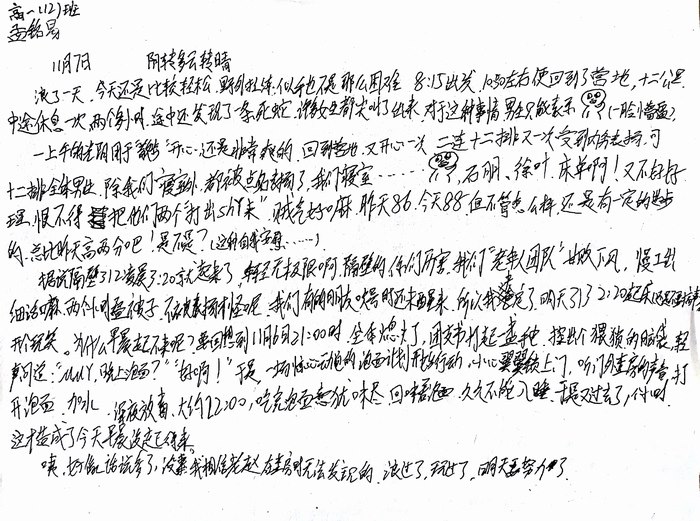 高一(12)班
孟铭昊
11月7日 阴转多云转晴
浪了一天,今天还是比较轻松,野外拉练似乎也不是那么困难 8:15出发,10:30左右便回到了营地,十二公里
中途休息一次,两个多小时,途中还发现了一条死蛇,许多女生都尖叫了出来,对于这种事情男生只能表示 (一脸懵逼).
一上午的光阴用于 开心,还是非常爽的,回到营地又开心一次 二连十二排又一次受到内务表扬,可
十二排全体男生,除我们寝室外,都被点名表扬了,我们寝室…… ,石朋、徐叶、床单啊!又不好好
理,恨不得 把他们两个打出shi来" 贼气好嘛,昨天86,今天88 但不管怎么样,还是有一定的进步
的,总比昨天高两分吧!是不是?(这种自我安慰……)
据说隔壁312凌晨3:20就起来了,年轻无极限啊,隔壁的你们厉害,我们"老年人团队"甘败下风,慢工出
细活嘛,两个小时叠被子,不被表扬才怪呢,我们有的朋友吹号时还未醒来,所以我决定了,明天313 2:20起床
开个玩笑。为什么早晨起不来呢?要回想到11月6日21:00时.全体熄灯,
声问道:"MMY,晚上泡面?""好啊!"于是一场惊心动魄的泡面计划开始行动,小心翼翼锁上门,听门外查房的声音,打
开泡面,加水,深夜放毒,大约22:00,吃完泡面意犹未尽,回味着泡面,久久不能入睡,于是又过去了1个小时.
这才造成了今天早晨
咦,好像话说多了,没事,我相信老赵 无法发现的,浪过了,玩过了,明天要努力了.